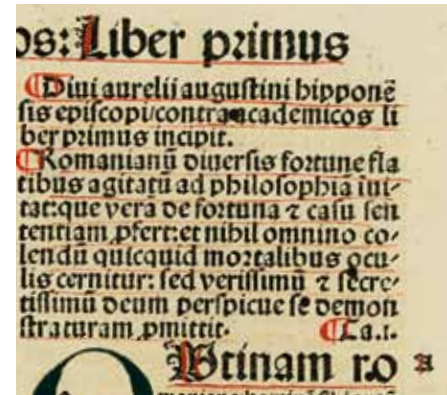 os: Liber primus
¶Diui aurelii augustini hipponẽ
sis episcopi/contra academicos li
ber primus incipit.
¶Romanianũ diuersis fortune fla
tibus agitatũ ad philosophiã inui-
tat:que vera de fortuna ⁊ casu sen
tentiam ꝓfert:et nihil omnino co-
lendũ quicquid mortalibus ocu-
lis cernitur: sed verissimũ ⁊ secre-
tissimũ deum perspicue se demon
straturam ꝓmittit. ¶Ca.i.
OVtinam ro a